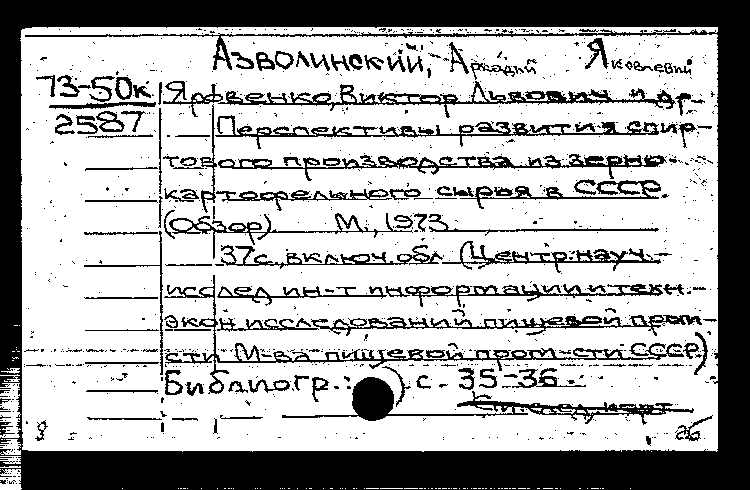 Азволинский, Аркадий Яковлевич
73-50к Яровенко, Виктор Львович и др.
2587 Перспективы развития спир-
тового производства из зерно-
картофельного сырья в СССР.
(Обзор). М., 1973.
37с., включ. обл. (Центр. науч.-
исслед. ин-т информации и техн.-
экон. исследований пищевой пром-
сти М-ва пищевой пром-сти СССР)
Библиогр.: с. 35-36.
См. след. карт.
8